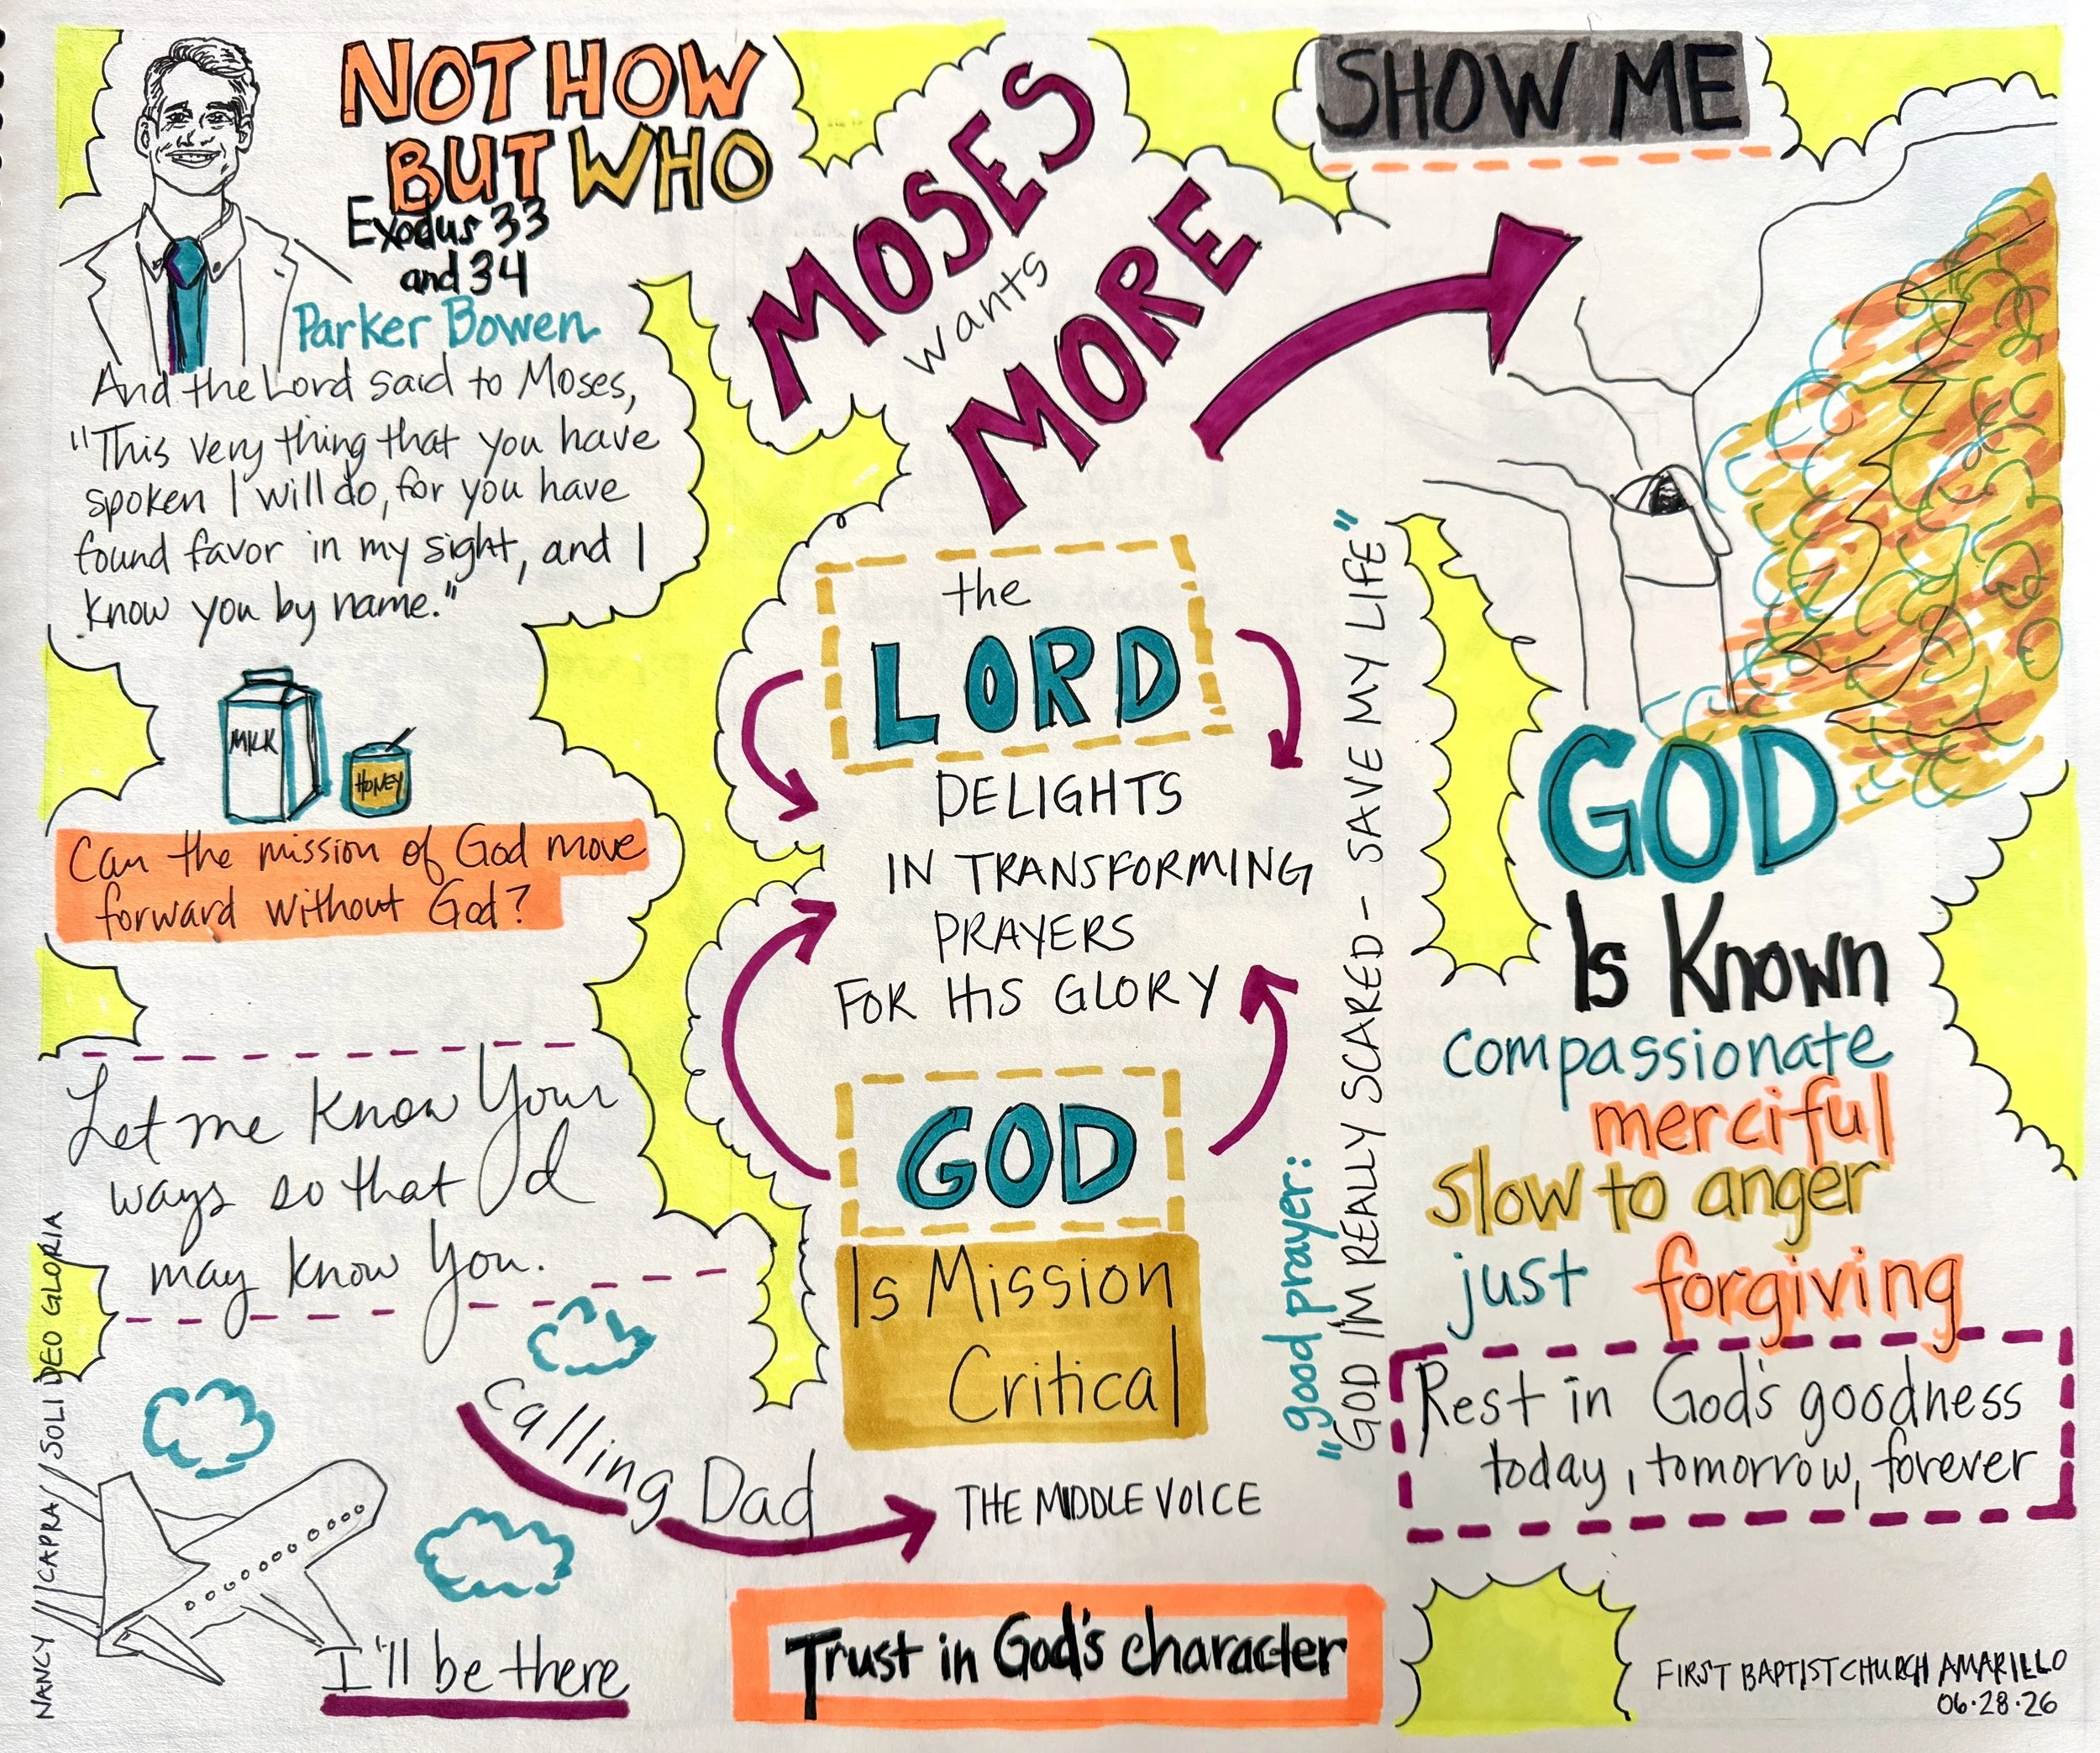 NOT HOW
BUT WHO
Exodus 33
and 34
Parker Bowen
And the Lord said to Moses,
"This very thing that you have
spoken I will do, for you have
found favor in my sight, and I
know you by name."
MILK
HONEY
Can the mission of God move
forward without God?
Let me know Your
ways so that I
may know You.
Calling Dad
I'll be there
NANCY CAPRA / SOLI DEO GLORIA
MOSES
wants
MORE
the
LORD
DELIGHTS
IN TRANSFORMING
PRAYERS
FOR HIS GLORY
GOD
Is Mission
Critical
THE MIDDLE VOICE
Trust in God's character
"good prayer:
"GOD I'M REALLY SCARED - SAVE MY LIFE"
SHOW ME
GOD
Is Known
compassionate
merciful
slow to anger
just forgiving
Rest in God's goodness
today, tomorrow, forever
FIRST BAPTIST CHURCH AMARILLO
06.28.26